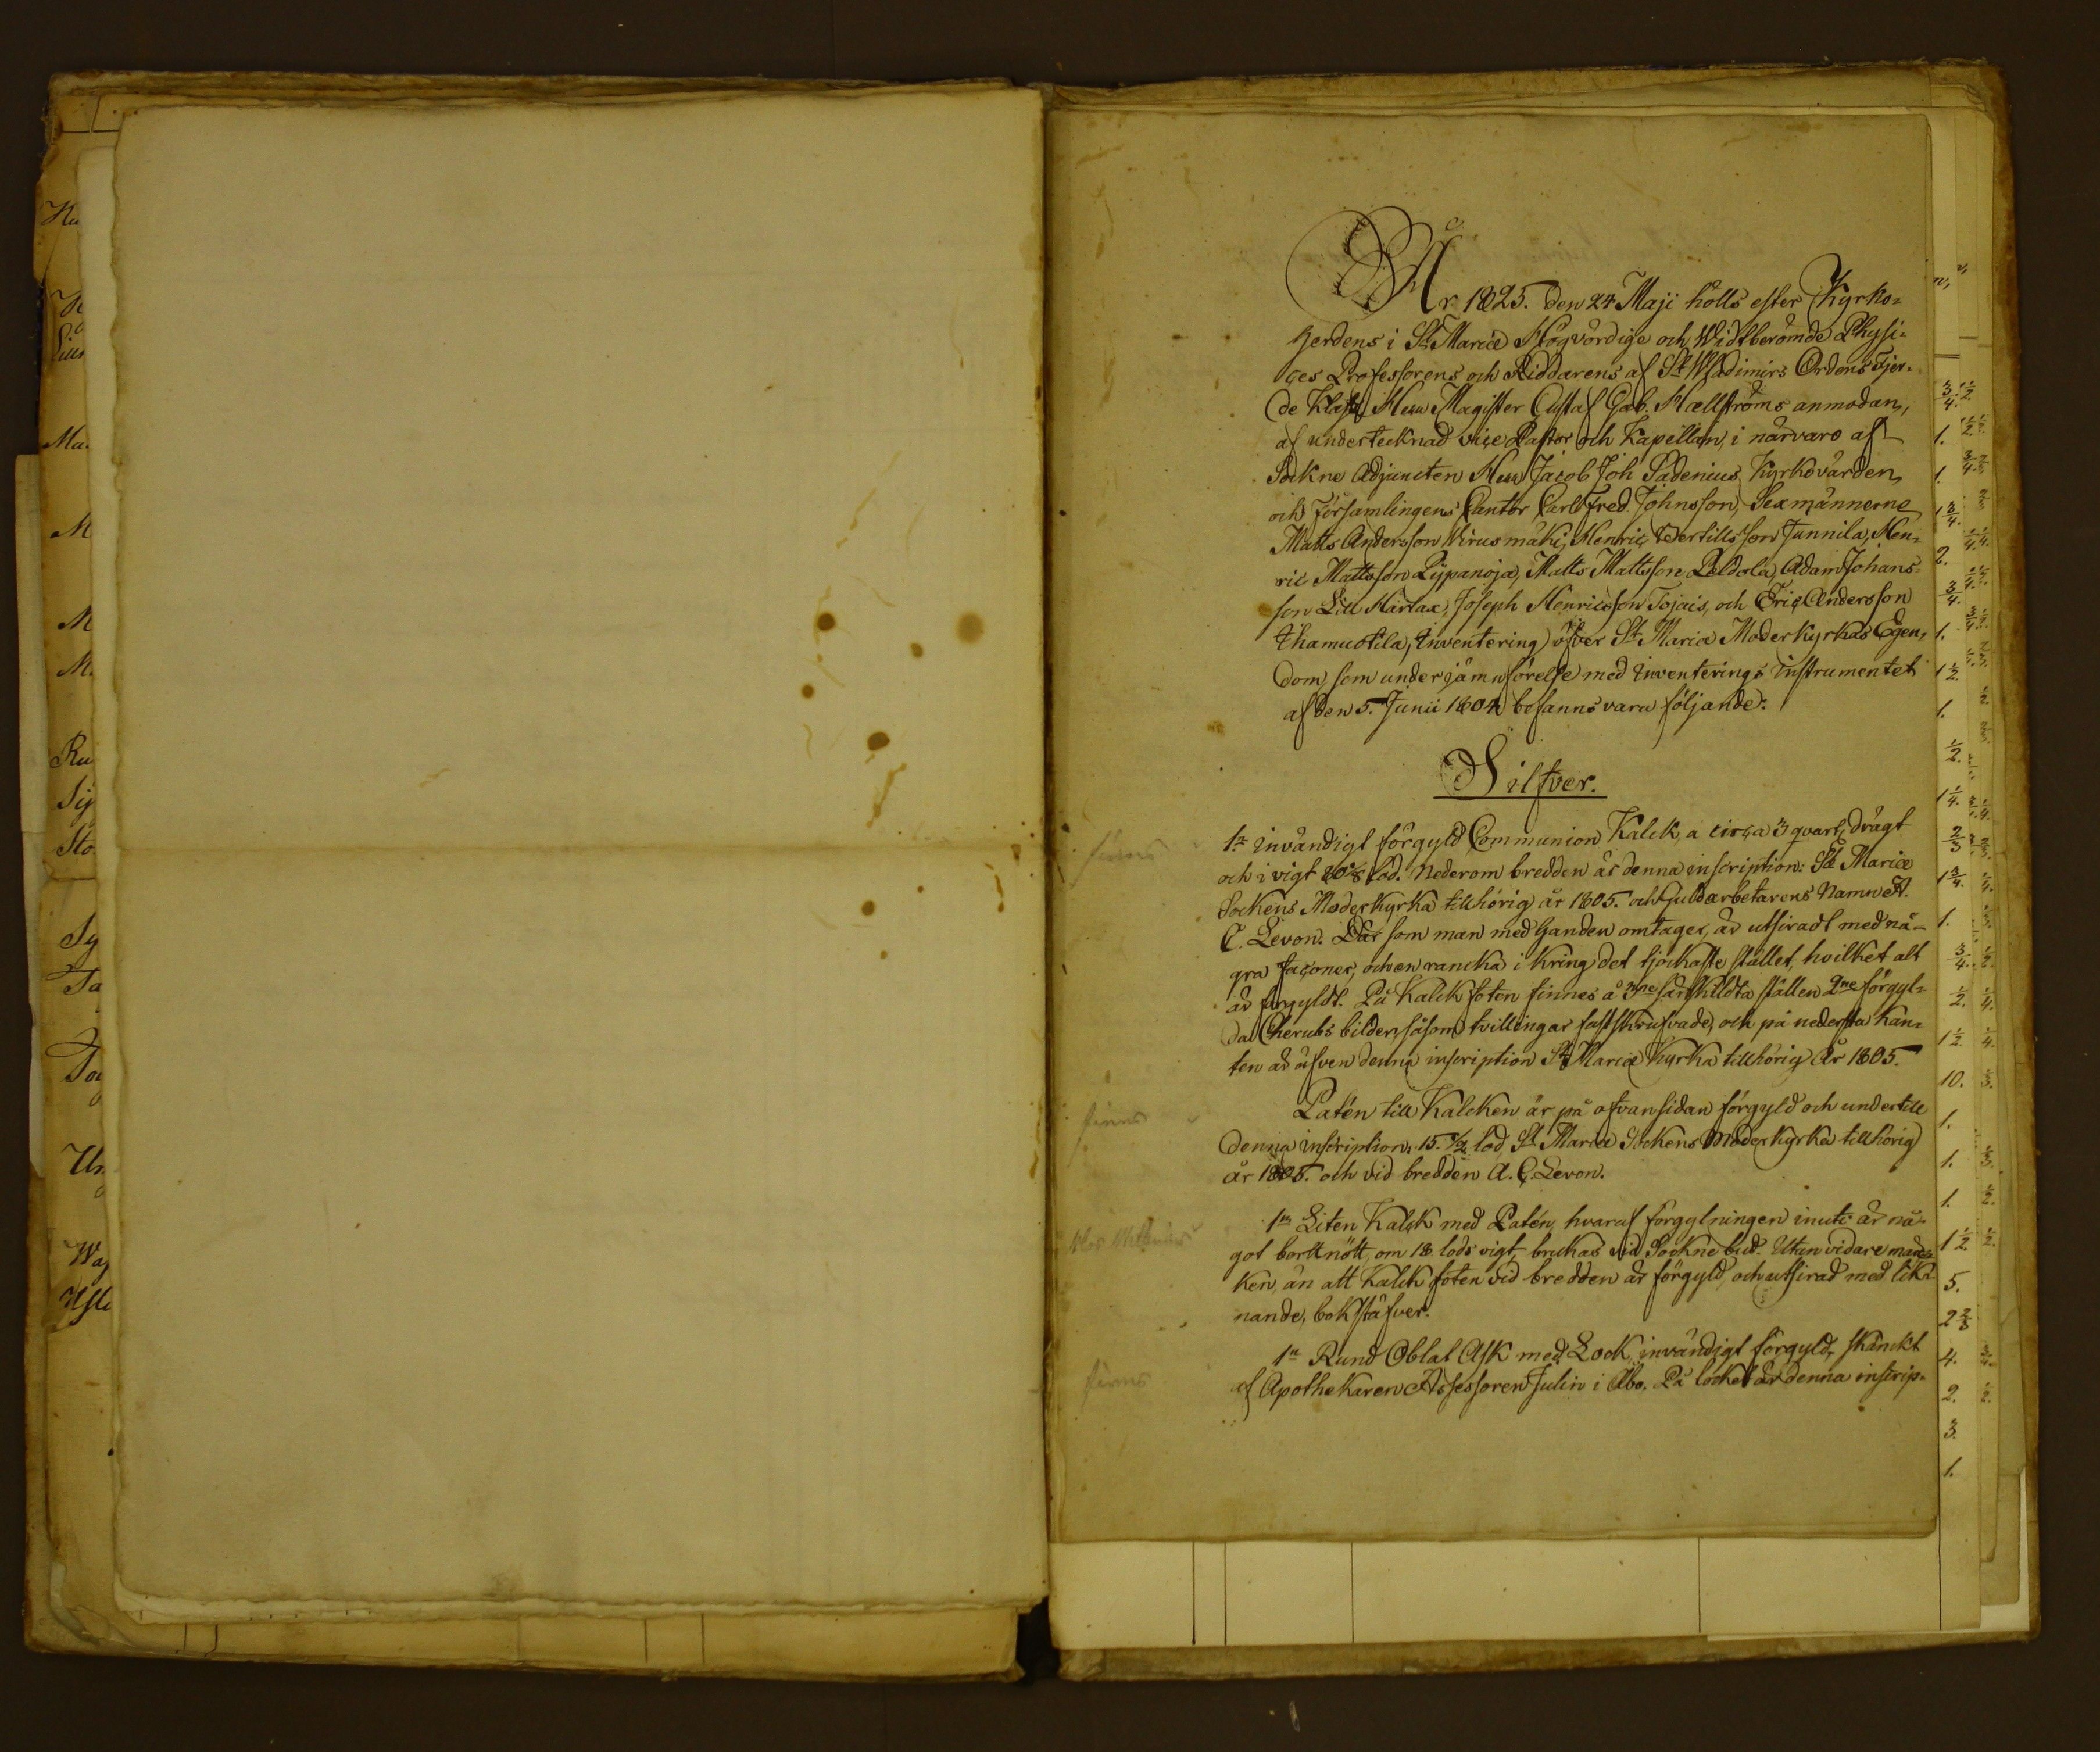 År 1825. den 24 Maji hölls efter Kyrko=
herdens i St Mariæ Högvördige och Widtberömde Physi=
ces Professorens och Riddarens af St Wladimirs Ordens fjer=
de Klass Herr Magister Gustaf Gab. Hællströms anmodan,
af undertecknad vice Pastor och Kapellan, i närvaro af
Sockne Adjuncten Herr Jacob Joh Padenius, Kyrkovärden,
och Församlingens Cantor Carl Fred. Johnsson, Sexmännerne
Matts Andersson Wirusmäki, Henric Bertillsson Junnila, Hen=
ric Mattsson Pypanoja, Matts Mattsson Peldola, Adam Johans=
son Lill Härlax, Joseph Henricsson Tojais, och Eric Andersson
Thamuotila, Inventering öfver St Mariæ Moderkyrkas Egen=
dom, som under jämnförelse med Inventerings instrumentet
af den 5. Junii 1804 befanns vara följande:
Silfver.
1n invändigt förgyld Communion Kalck, a circa 3 qvart. drägt
och i vigt lod. Nederom bredden är denna inscription: St Mariæ
Sockens Moderkyrka tillhörig år 1805. och Guldarbetarens Namn A.
C. Levon. Där som man med handen omtager, är utsiradt med nå=
gra façoner, och en rancka i kring det tjockaste stället, hvilket alt
är förgyldt. På Kalckfoten finnes å 3ne särskildta ställen 2ne förgyl=
da Cherubs bilder, såsom tvillingar fastskrufvade, och på nedersta kan=
ten är äfven denna inscription St Mariæ Kyrka tillhörig År 1805.
Patén till Kalcken är på ofvansidan förgyld och undertill
denna inscription: 15. 1/2 lod St Mariæ Sockens Moderkyrka tillhörig
år 1805. och vid bredden A. C. Levon.
1n Liten Kalck med Patén, hvaraf förgylningen inuti är nå=
got bortnött, om 18 lods vigt, brukas vid Sockne bud. Utan vidare mär=
ken, än att Kalck foten vid bredden är förgyld och utsirad med lik=
nande, bokstäfver.
1n Rund Oblat Ask med Lock, invändigt förgyld, skänckt
af Apothekaren Assessoren Julin i Åbo. På locket är denna inscrip=
finns
finnes
finns